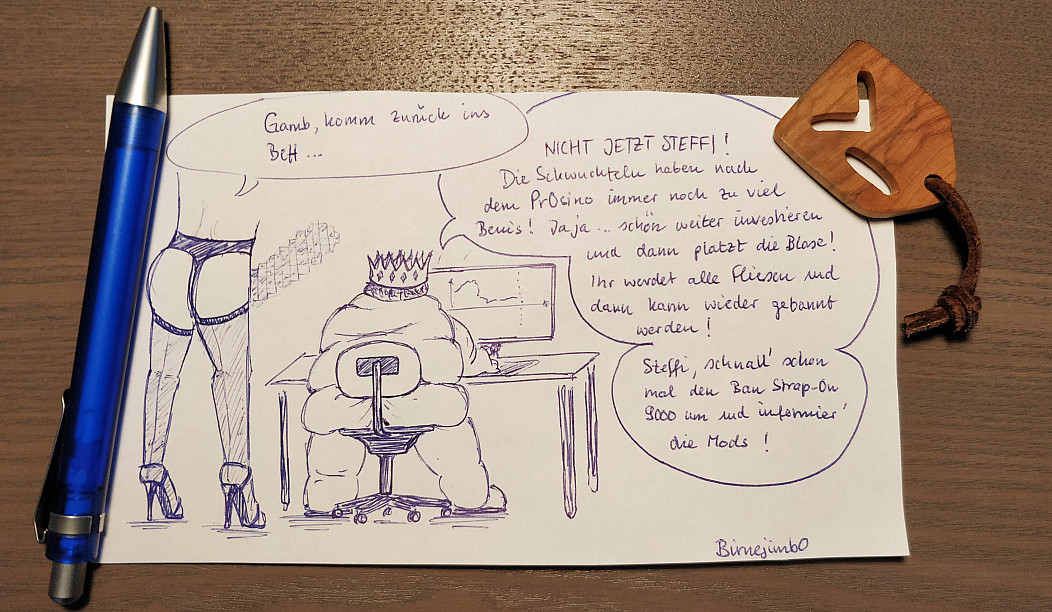 Gamb, komm zurück ins
Bett ...
NICHT JETZT STEFFI!
Die Schwuchteln haben nach
dem Pr0sino immer noch zu viel
Benis! Jaja ... schön weiter investieren
und dann platzt die Blase!
Ihr werdet alle Fliesen und
dann kann wieder gebannt
werden!
Steffi, schnall' schon
mal den Ban Strap-On
9000 um und informier'
die Mods!
Birnejimb0